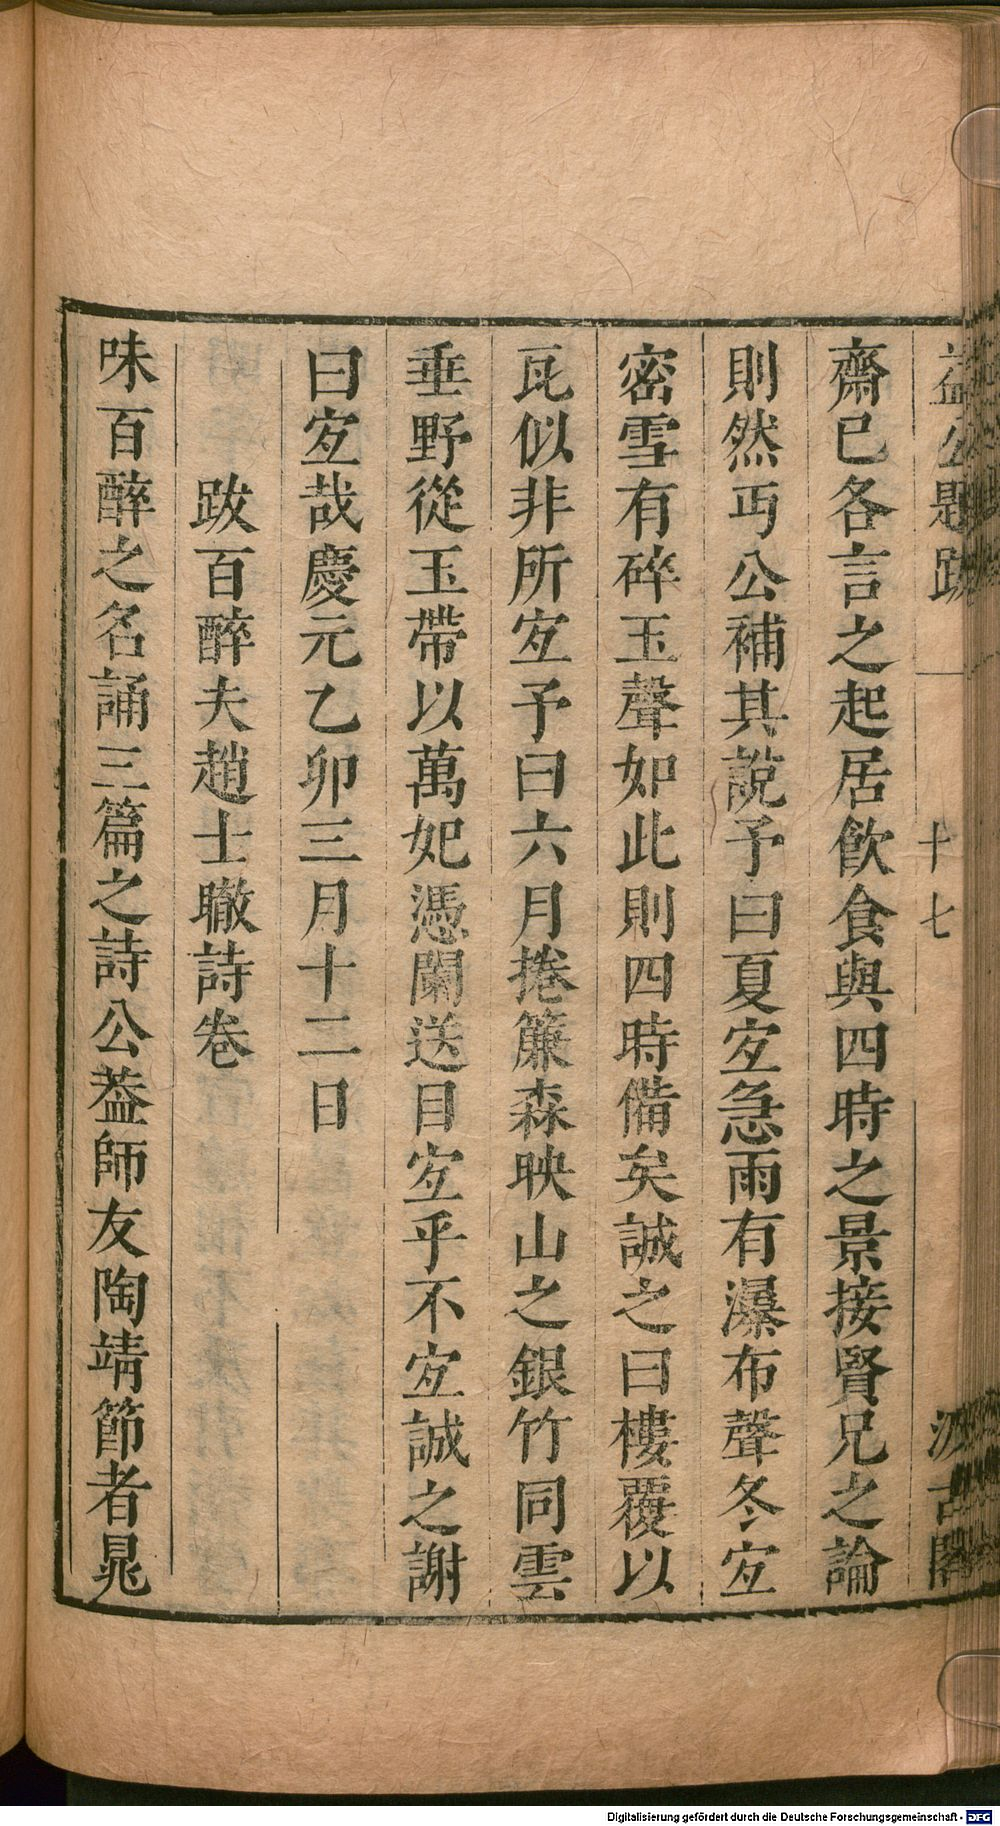 益公題跋 十七 汲古閣
齋已各言之起居飲食與四時之景接賢兄之論
則然丏公補其說予曰夏宐急雨有瀑布聲冬宐
密雪有碎玉聲如此則四時備矣誠之曰樓覆以
瓦似非所宐予曰六月捲簾森映山之銀竹同雲
垂野從玉帶以萬妃憑闌送目宐乎不宐誠之謝
曰宐哉慶元乙卯三月十二日
跋百醉夫趙士𨍏詩卷
味百醉之名誦三篇之詩公葢師友陶靖節者晁
Digitalisierung gefördert durch die Deutsche Forschungsgemeinschaft - DFG